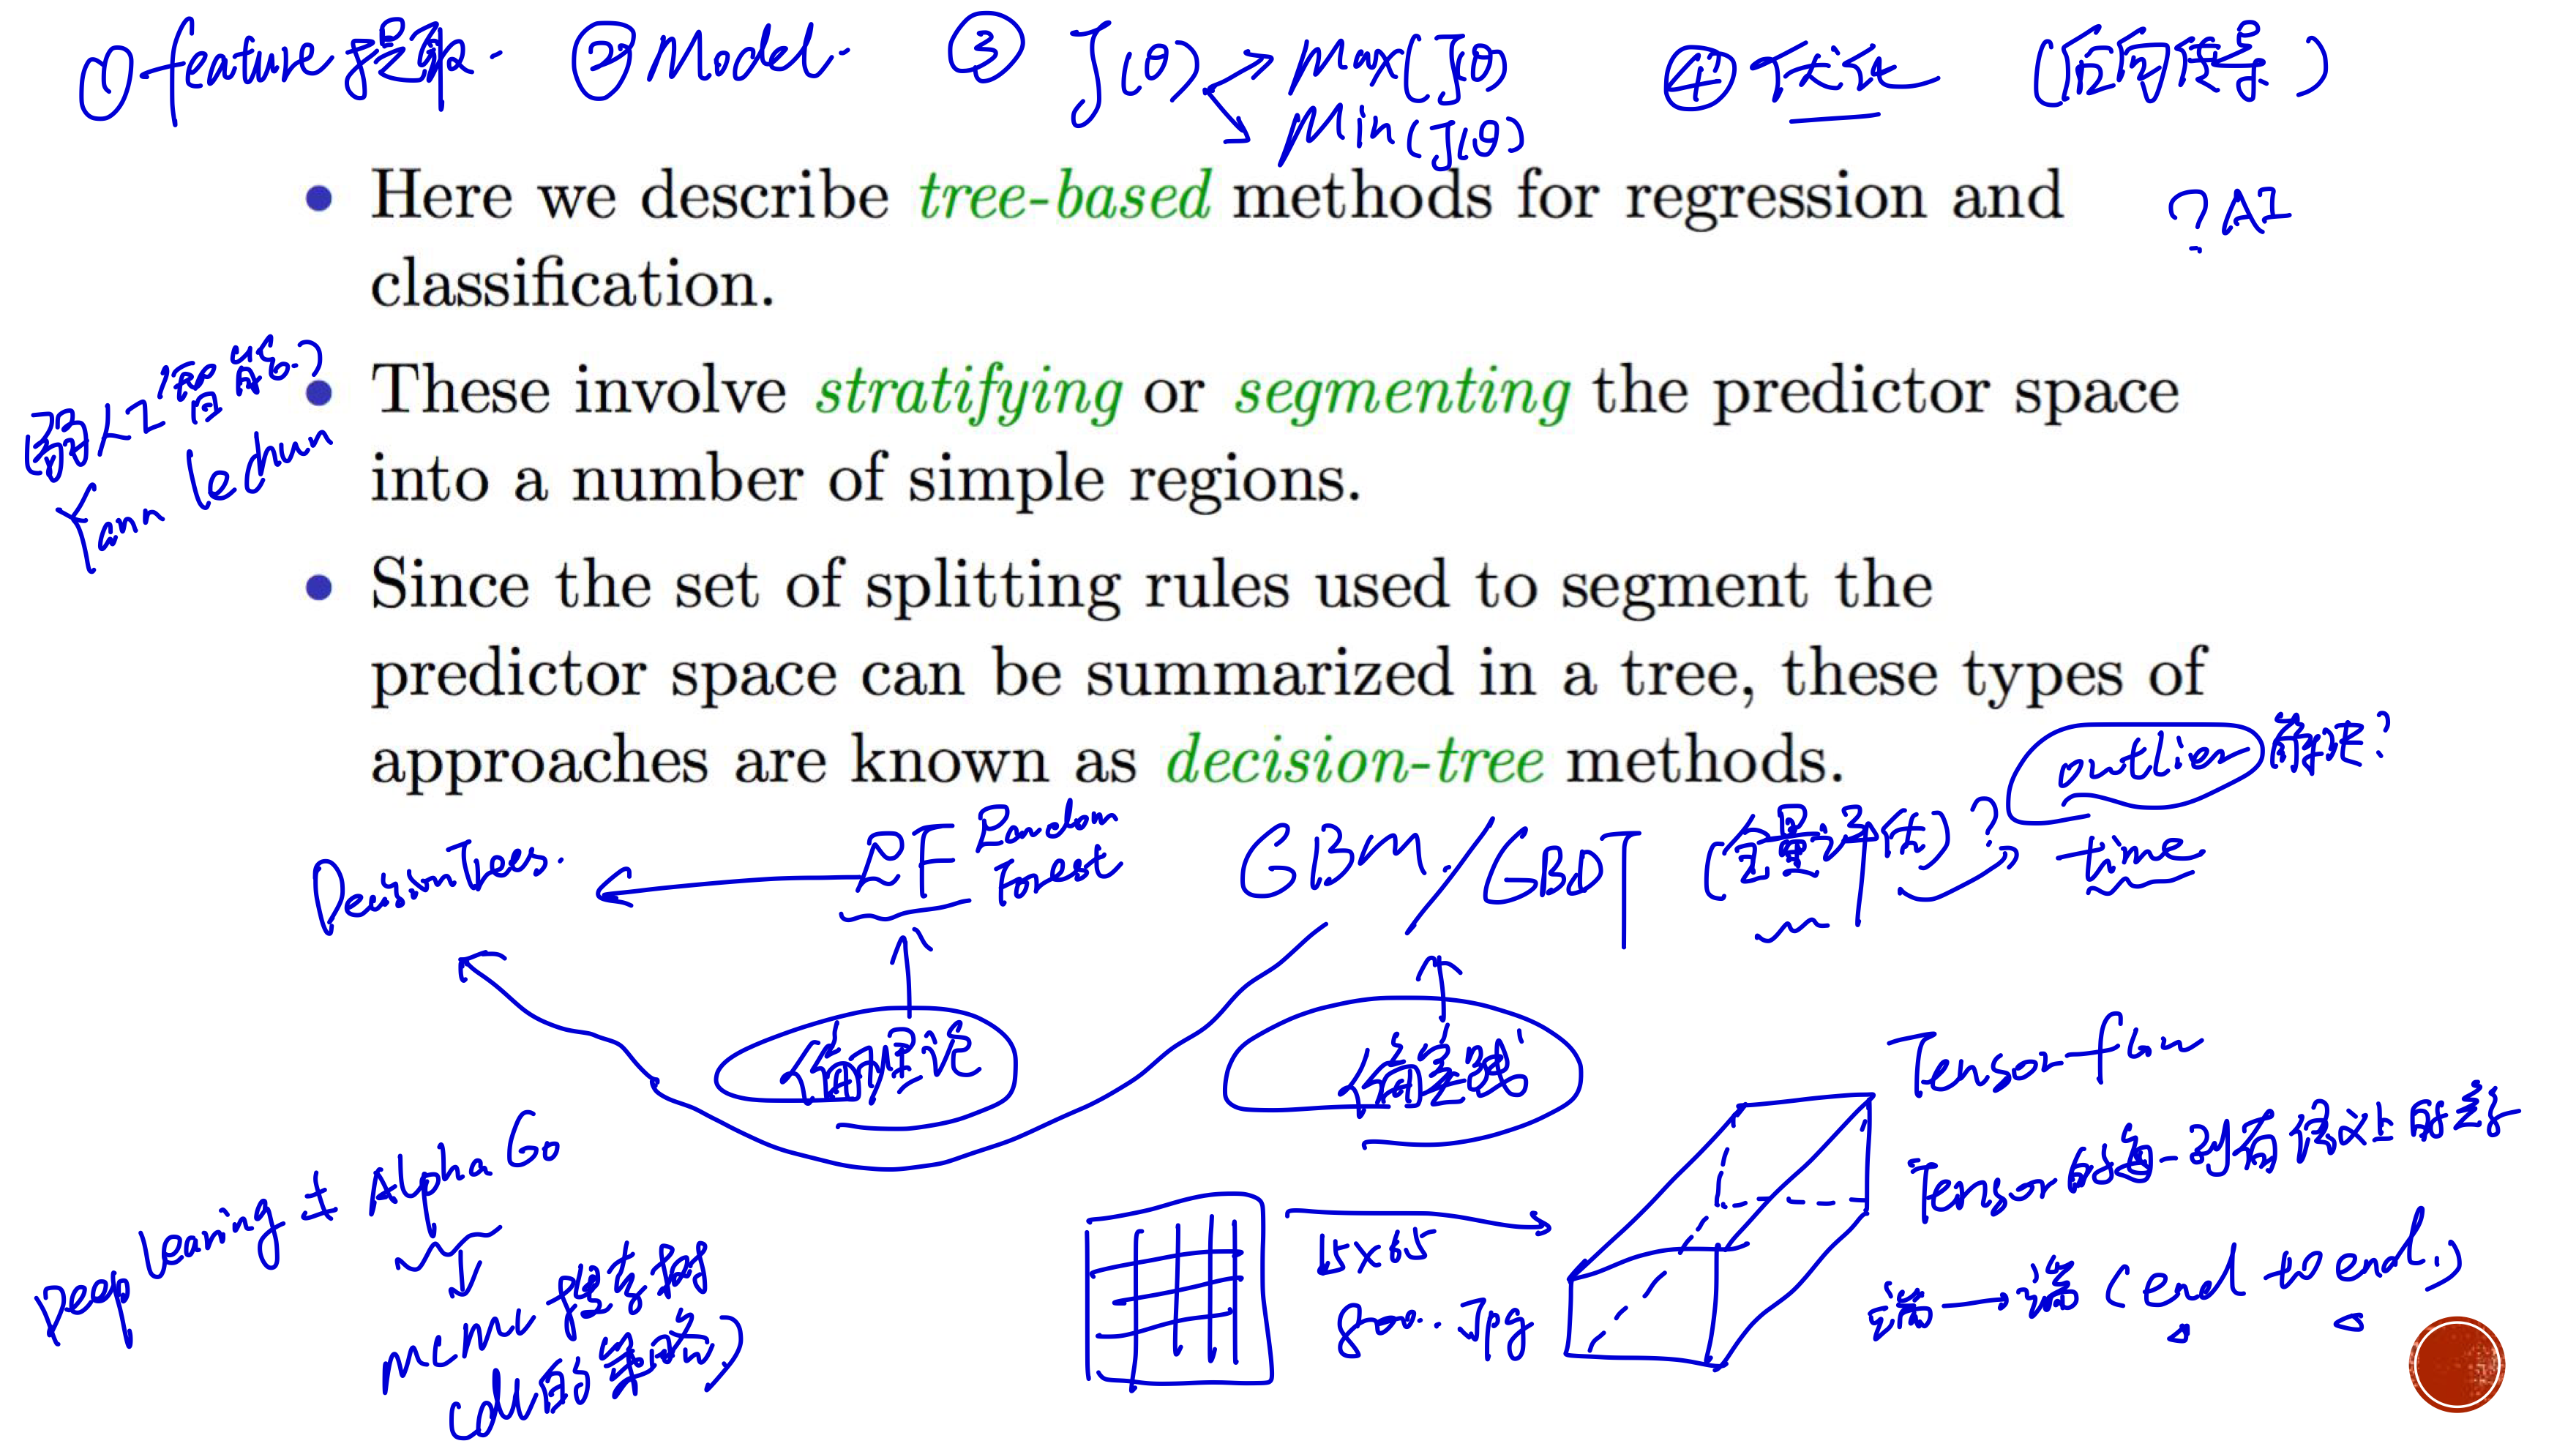 ① feature 提取. ② Model. ③ J(θ) Max(J(θ) ④ 优化 (后向传导)
Min(J(θ)
• Here we describe tree-based methods for regression and
classification.
? AI
• These involve stratifying or segmenting the predictor space
into a number of simple regions.
(弱人工智能.)
Yann lechun
• Since the set of splitting rules used to segment the
predictor space can be summarized in a tree, these types of
approaches are known as decision-tree methods.
outlier 解决?
Decision Trees. RF Random Forest GBM / GBDT (全量评估)? time
偏理论 偏实践
Tensorflow
Tensor 的每一列有意义上的差
Deep learning 与 Alpha Go
15×65
800.. Jpg
端→端 (end to end.)
MCMC 搜索树
的策略)